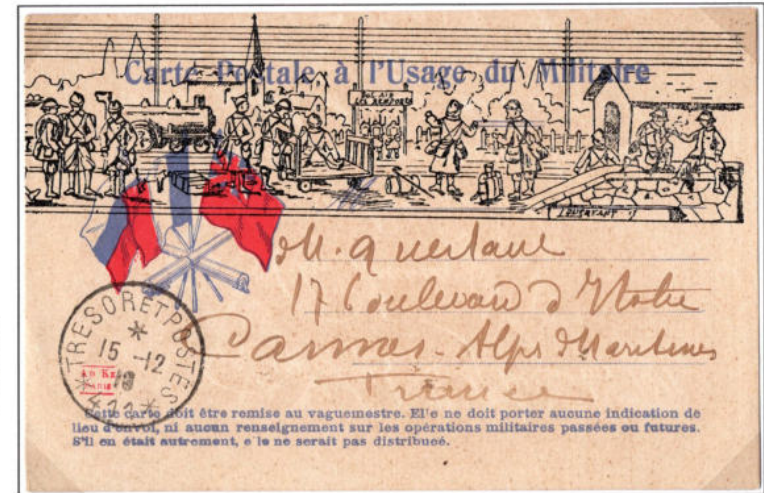 Carte Postale à l'Usage du Militaire
M. Querlaue
17 Boulevard d'Italie
Cannes. Alpes Maritimes
France
TRESOR ET POSTES
15 -12
19
Cette carte doit être remise au vaguemestre. El'e ne doit porter aucune indication de
lieu d'envoi, ni aucun renseignement sur les opérations militaires passées ou futures.
S'il en était autrement, e le ne serait pas distribueé.